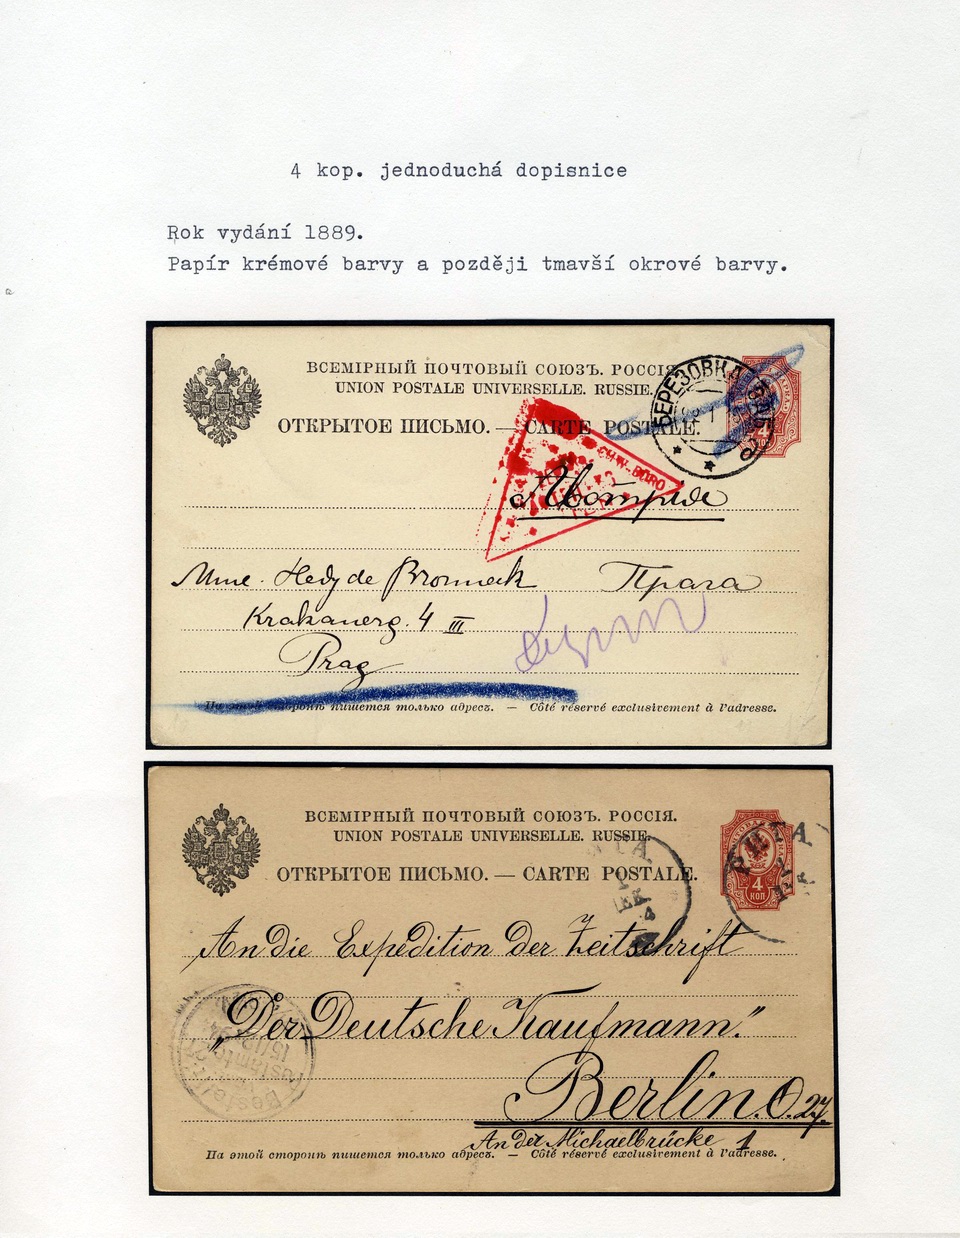 4 kop. jednoduchá dopisnice
Rok vydání 1889.
Papír krémové barvy a později tmavší okrové barvy.
ВСЕМІРНЫЙ ПОЧТОВЫЙ СОЮЗЪ. РОССІЯ.
UNION POSTALE UNIVERSELLE. RUSSIE.
ОТКРЫТОЕ ПИСЬМО. — CARTE POSTALE.
БЕРЕЗОВКА
BÜRO
Mme. Hedy de
Прага
4 III
Prag
На этой сторонѣ пишется только адресъ. — Côté réservé exclusivement à l'adresse.
ВСЕМІРНЫЙ ПОЧТОВЫЙ СОЮЗЪ. РОССІЯ.
UNION POSTALE UNIVERSELLE. RUSSIE.
ОТКРЫТОЕ ПИСЬМО. — CARTE POSTALE.
4 КОП
An die Expedition der Zeitschrift
„Der Deutsche Kaufmann."
Berlin. O. 27.
An der Michaelbrücke 1
На этой сторонѣ пишется только адресъ. — Côté réservé exclusivement à l'adresse.